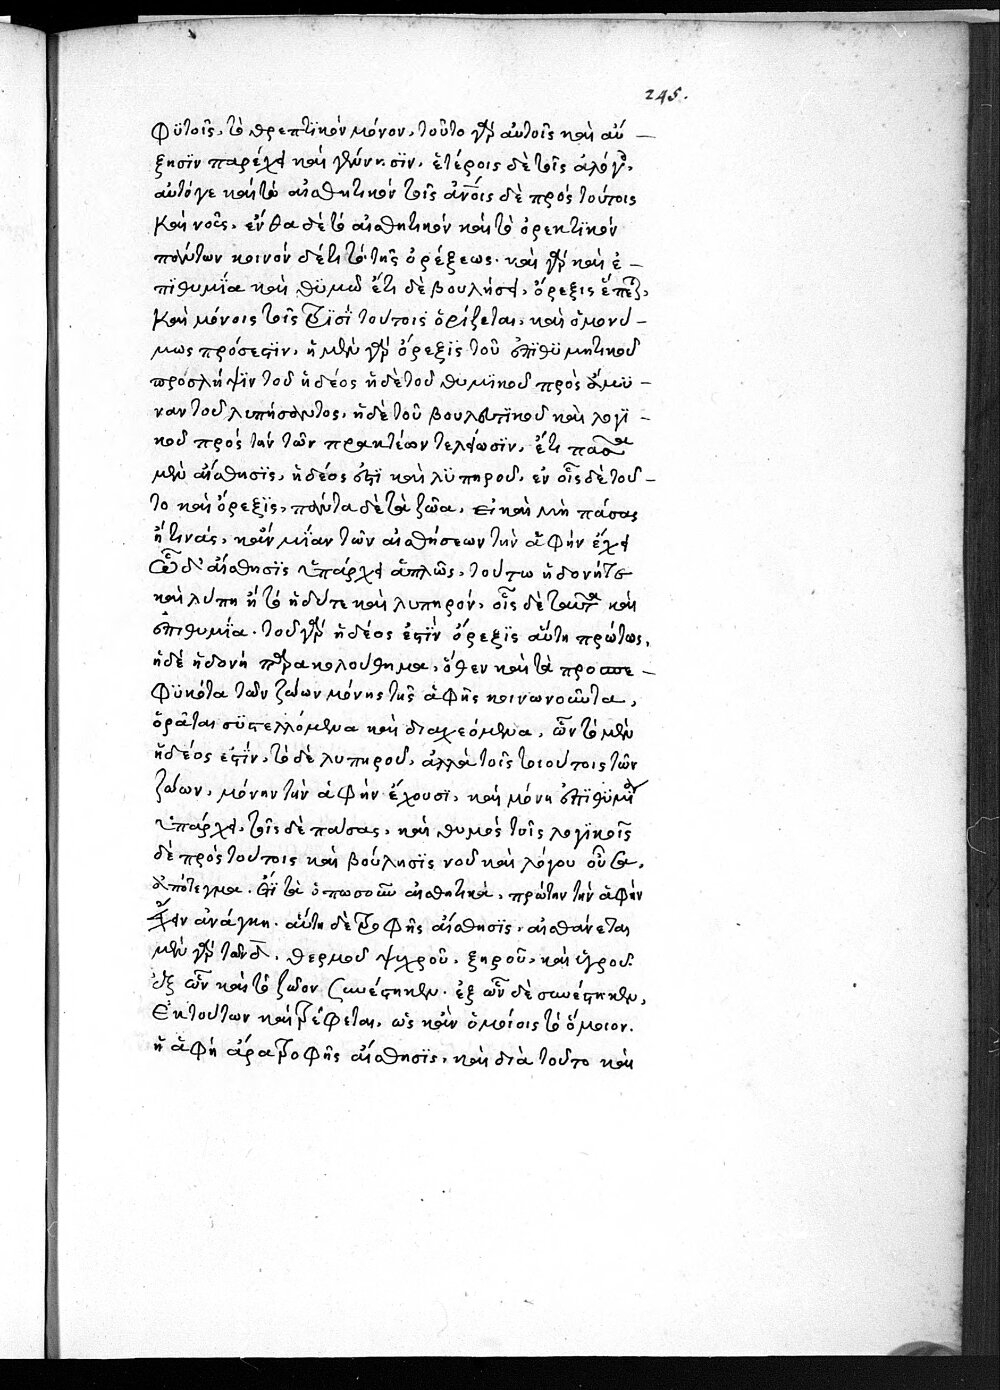 245.
φϋτοῖς, τὸ θρεπτϊκόν μόνον, τοῦτο γὰρ αὐτοῖς καὶ αὔ –
ξησϊν παρέχει καὶ γέννησϊν, ἑτέροις δὲ τοῖς ἀλόγοις,
αὐτόγε καὶ τὸ αἰσθητικόν τοῖς ἀν̅οις δὲ πρὸς τούτοις
καὶ νοῦς, ἔνθα δὲ τὸ αἰσθητικόν καὶ τὸ ὀρεκτϊκόν
πάντων κοινόν δέ τι τὸ τῆς ὀρέξεως. καὶ γὰρ καὶ ἐ –
πϊθυμΐα καὶ θϋμῶ ἔτι δὲ βουλήσει, ὄρεξις
καὶ μόνοις τοῖς τρϊσΐ τούτοις ὁρίζεται, καὶ ὁμωνύ –
μως πρόσεστϊν, ἡ μὲν γὰρ ὄρεξϊς τοῦ ἐπϊθϋμητικοῦ
πρόσληψϊν τοῦ ἡδέος ἡ δὲ τοῦ θυμϊκοῦ πρὸς ἄμϋ –
ναν τοῦ λυπήσαντος, ἡ δὲ τοῦ βουλευτϊκοῦ καὶ λογϊ –
κοῦ πρὸς τὴν τῶν πρακτέων τελείωσϊν, ἔτι πᾶσα
μὲν αἴσθησϊς, ἡδέος ἐστϊ καὶ λϋπηροῦ, ἐν οἷς δὲ τοῦ –
το καὶ ὄρεξϊς, πάντα δὲ τὰ ζῶα, εἰ καὶ μὴ πάσας
ἤ τινάς, κἂν μΐαν τῶν αἰσθήσεων τὴν ἁφὴν ἔχει
ὧ δ' αἴσθησϊς ὑπάρχει ἁπλῶς, τούτω ἡδονήτε
καὶ λύπη ἢ τὸ ἡδύτε καὶ λυπηρόν, οἷς δὲ ταῦτα καὶ
ἐπιθυμΐα. τοῦ γὰρ ἡδέος ἐστΐν ὄρεξϊς αὕτη πρώτως,
ἡ δὲ ἡδονὴ παρακολούθημα, ὅθεν καὶ τὰ προσπε –
φϋκότα τῶν ζώων μόνης τῆς ἁφῆς κοινωνοῦντα,
ὁρᾶται σϋστελλόμενα καὶ διαχεόμενα, ὧν τὸ μὲν
ἡδέος ἐστΐν, τὸ δὲ λυπηροῦ, ἀλλὰ τοῖς τοιούτοις τῶν
ζώων, μόνην τὴν ἁφὴν ἔχουσϊ, καὶ μόνη ἐπϊθϋμΐα
ὑπάρχει, τοῖς δὲ πάσας, καὶ θυμὸς τοῖς λογϊκοῖς
δὲ πρὸς τούτοις καὶ βούλησϊς νοῦ καὶ λόγου οὖσα,
ἀπότεγμα. ὅτϊ τὰ ὁπωσοῦν αἰσθητικὰ, πρώτην τὴν ἁφὴν
ἔχειν ἀνάγκη. αὕτη δὲ τροφῆς αἴσθησϊς, αἰσθάνεται
μὲν γὰρ τῶν δ̅, θερμοῦ ψυχροῦ, ξηροῦ, καὶ ὑγροῦ.
ἐξ ὧν καὶ τὸ ζῶον συνέστηκεν. ἐξ ὧν δὲ συνέστηκεν,
ἐκ τούτων καὶ τρέφεται, ὡς κἂν ὁμοίοις τὸ ὅμοιον.
ἡ ἁφὴ ἄρα τροφῆς αἴσθησϊς, καὶ διὰ τοῦτο καὶ